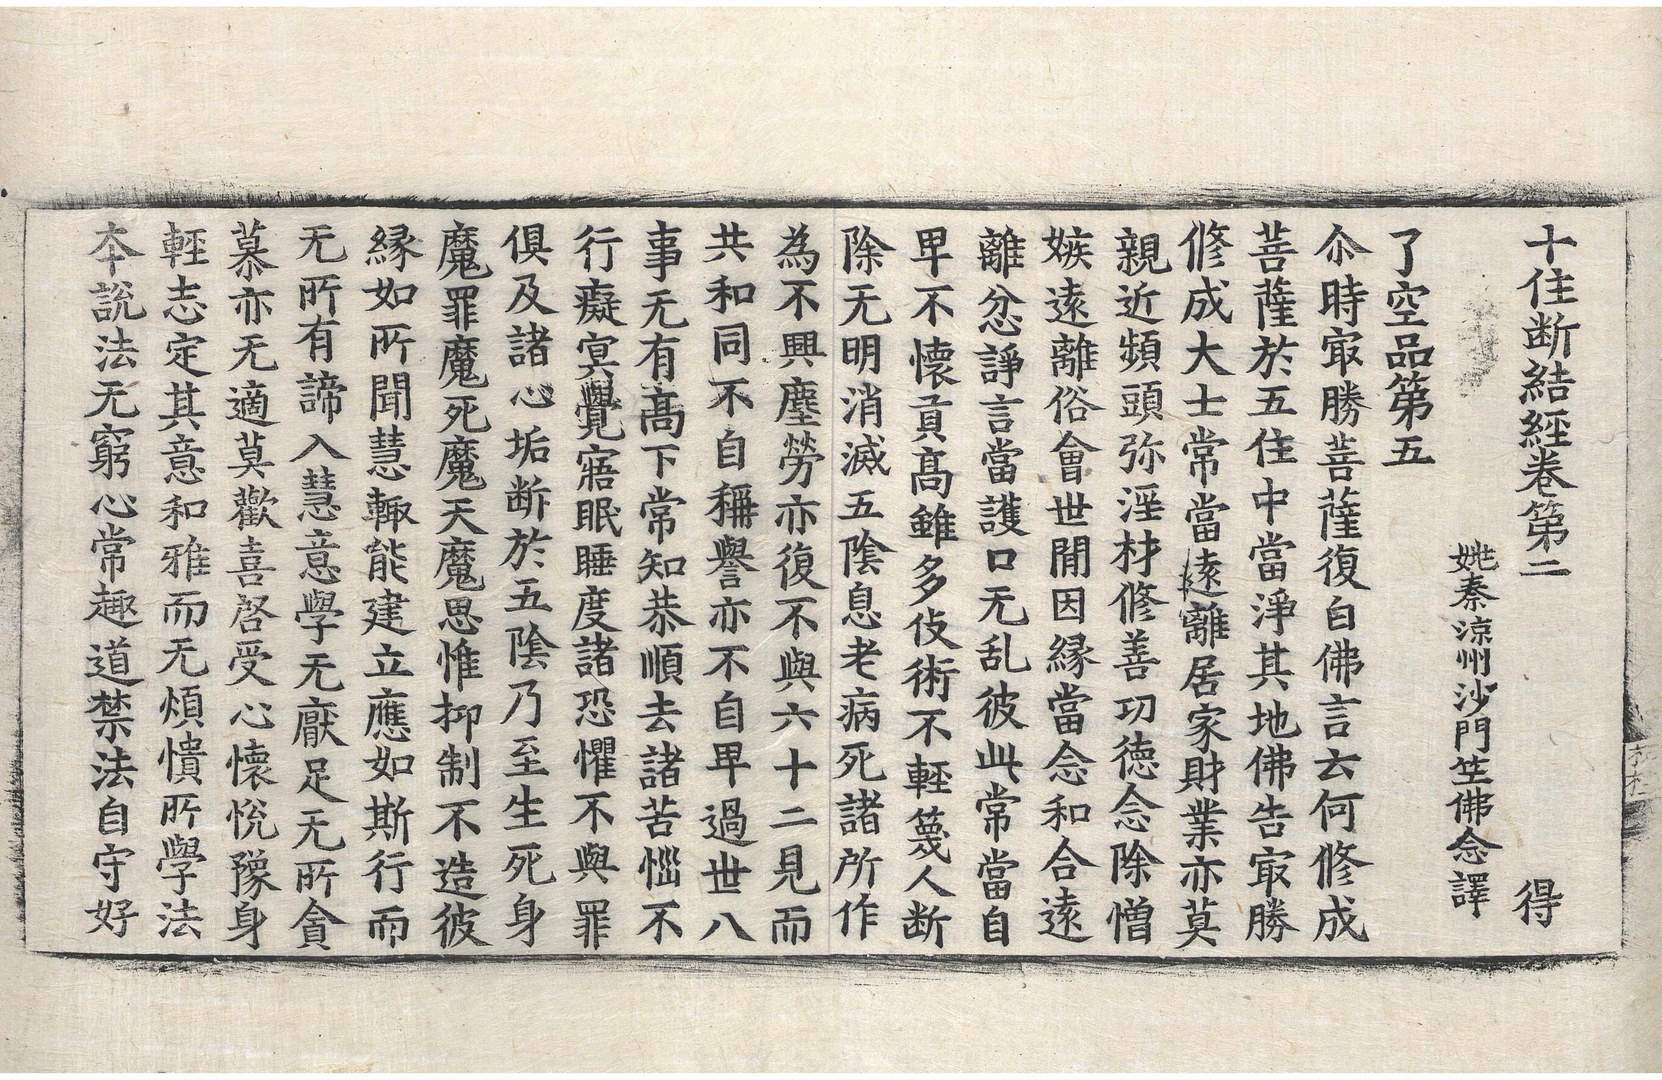 十住断結經卷第二　得
姚秦涼州沙門竺佛念譯
了空品第五
尒時㝡勝菩薩復白佛言云何修成
菩薩於五住中當淨其地佛告㝡勝
修成大士常當遠離居家財業亦莫
親近頻頭弥淫材修善功德念除憎
嫉遠離俗會世間因緣當念和合遠
離忿諍言當護口无乱彼此常當自
卑不懷貢髙雖多伎術不輕篾人断
除无明消滅五陰息老病死諸所作
為不興塵勞亦復不與六十二見而
共和同不自稱譽亦不自卑過世八
事无有髙下常知恭順去諸苦惱不
行癡冥覺寤眠睡度諸恐懼不與罪
俱及諸心垢断於五陰乃至生死身
魔罪魔死魔天魔思惟抑制不造彼
緣如所聞慧輙能建立應如斯行而
无所有諦入慧意學无猒足无所貪
慕亦无適莫歡喜啓受心懷悅豫身
輕志定其意和雅而无煩憒所學法
夲說法无窮心常趣道禁法自守好